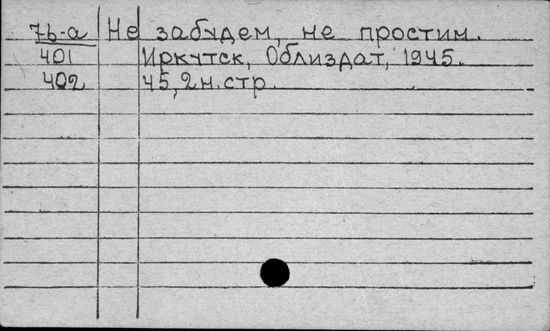 7b-a Не забудем, не простим.
401 Иркутск, Облиздат, 1945.
402 45, 2 н. стр.